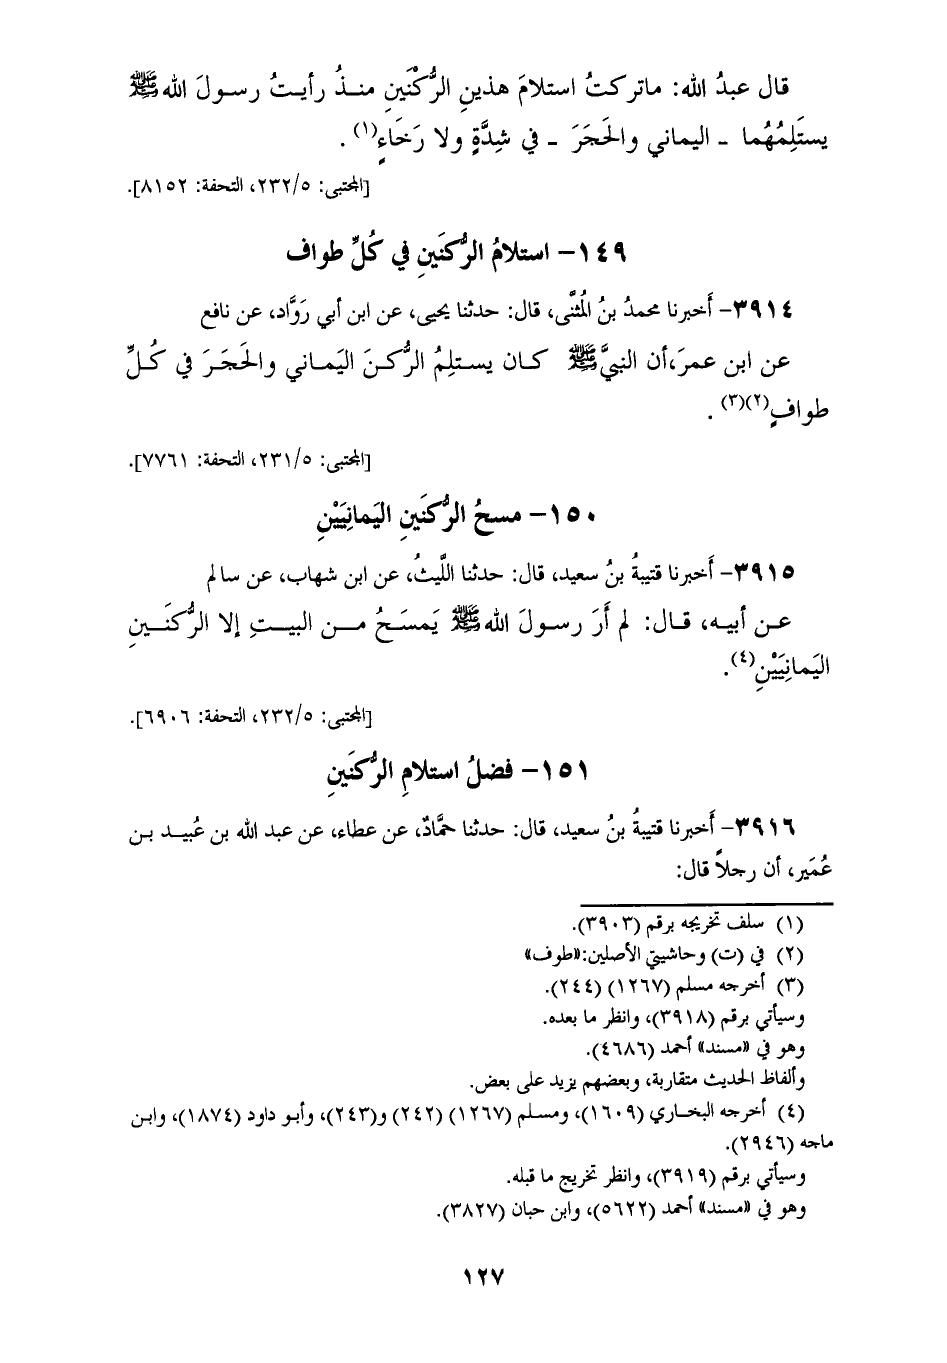 قال عبدُ الله: ماتركتُ استلامَ هذينِ الرُّكْنَينِ منـذُ رأيـتُ رسـولَ الله ﷺ
يستَلِمُهُما - اليماني والحَجَرَ - في شِدَّةٍ ولا رَخَاءٍ(١) .
[المجتبى: ٢٣٢/٥، التحفة: ٨١٥٢].
١٤٩- استلامُ الرُّكنَينِ في كُلِّ طواف
٣٩١٤- أَخبرنا محمدُ بنُ المُثنَّى، قال: حدثنا يحيى، عن ابن أبي رَوَّاد، عن نافع
عن ابن عمرَ،أن النبيَّ ﷺ كـان يسـتلِمُ الرُّكـنَ اليَمـاني والحَجَـرَ في كُـلِّ
طوافٍ(٢)(٣) .
[المجتبى: ٢٣١/٥، التحفة: ٧٧٦١].
١٥٠- مسحُ الرُّكنَينِ اليَمانِيَيْنِ
٣٩١٥- أَخبرنا قتيبةُ بنُ سعيد، قال: حدثنا اللَّيثُ، عن ابن شهاب، عن سالم
عـن أبيـه، قـال: لم أَرَ رسـولَ الله ﷺ يَمسَـحُ مـن البيـتِ إلا الرُّكنَـينِ
اليَمانِيَيْنِ(٤).
[المجتبى: ٢٣٢/٥، التحفة: ٦٩٠٦].
١٥١- فضلُ استلامِ الرُّكنَينِ
٣٩١٦- أَخبرنا قتيبةُ بنُ سعيد، قال: حدثنا حمَّادٌ، عن عطاء، عن عبد الله بن عُبيـد بـن
عُمَير، أن رجلاً قال:
(١) سلف تخريجه برقم (٣٩٠٣).
(٢) في (ت) وحاشيتي الأصلين:«طوف»
(٣) أخرجه مسلم (١٢٦٧) (٢٤٤).
وسيأتي برقم (٣٩١٨)، وانظر ما بعده.
وهو في «مسند» أحمد (٤٦٨٦).
وألفاظ الحديث متقاربة، وبعضهم يزيد على بعض.
(٤) أخرجه البخـاري (١٦٠٩)، ومسـلم (١٢٦٧) (٢٤٢) و(٢٤٣)، وأبـو داود (١٨٧٤)، وابـن
ماجه (٢٩٤٦).
وسيأتي برقم (٣٩١٩)، وانظر تخريج ما قبله.
وهو في «مسند» أحمد (٥٦٢٢)، وابن حبان (٣٨٢٧).
١٢٧